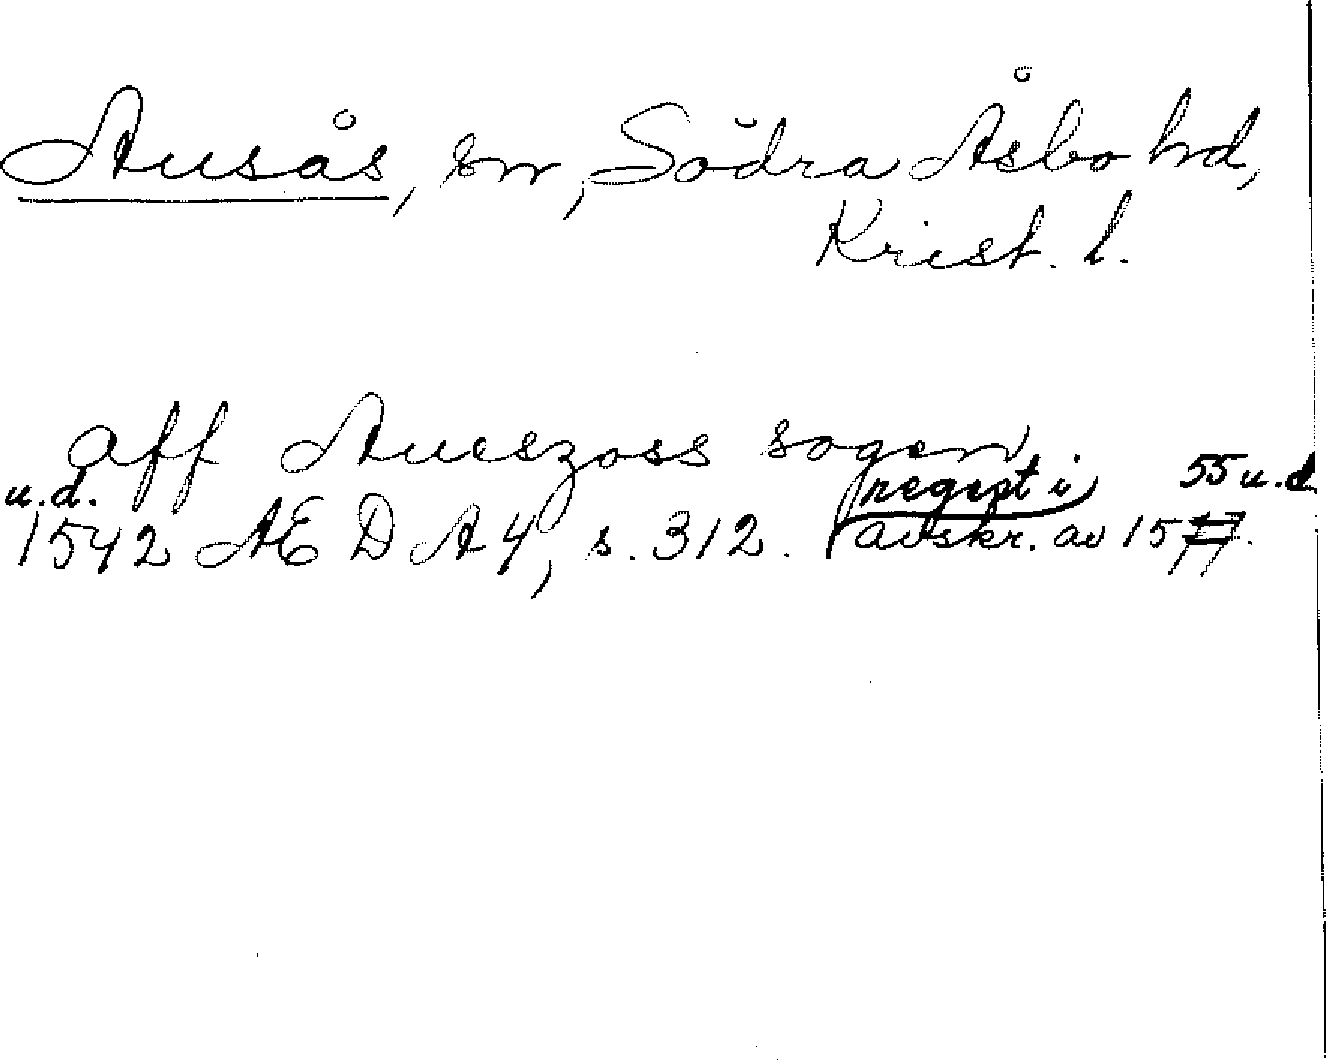 Ausås, sn, Södra Åsbo hd,
Krist. l.
aff Aueszoss sogen
u.d. regest i 55 u.d.
1542 AE D A 4, s. 312. avskr. av 1577.